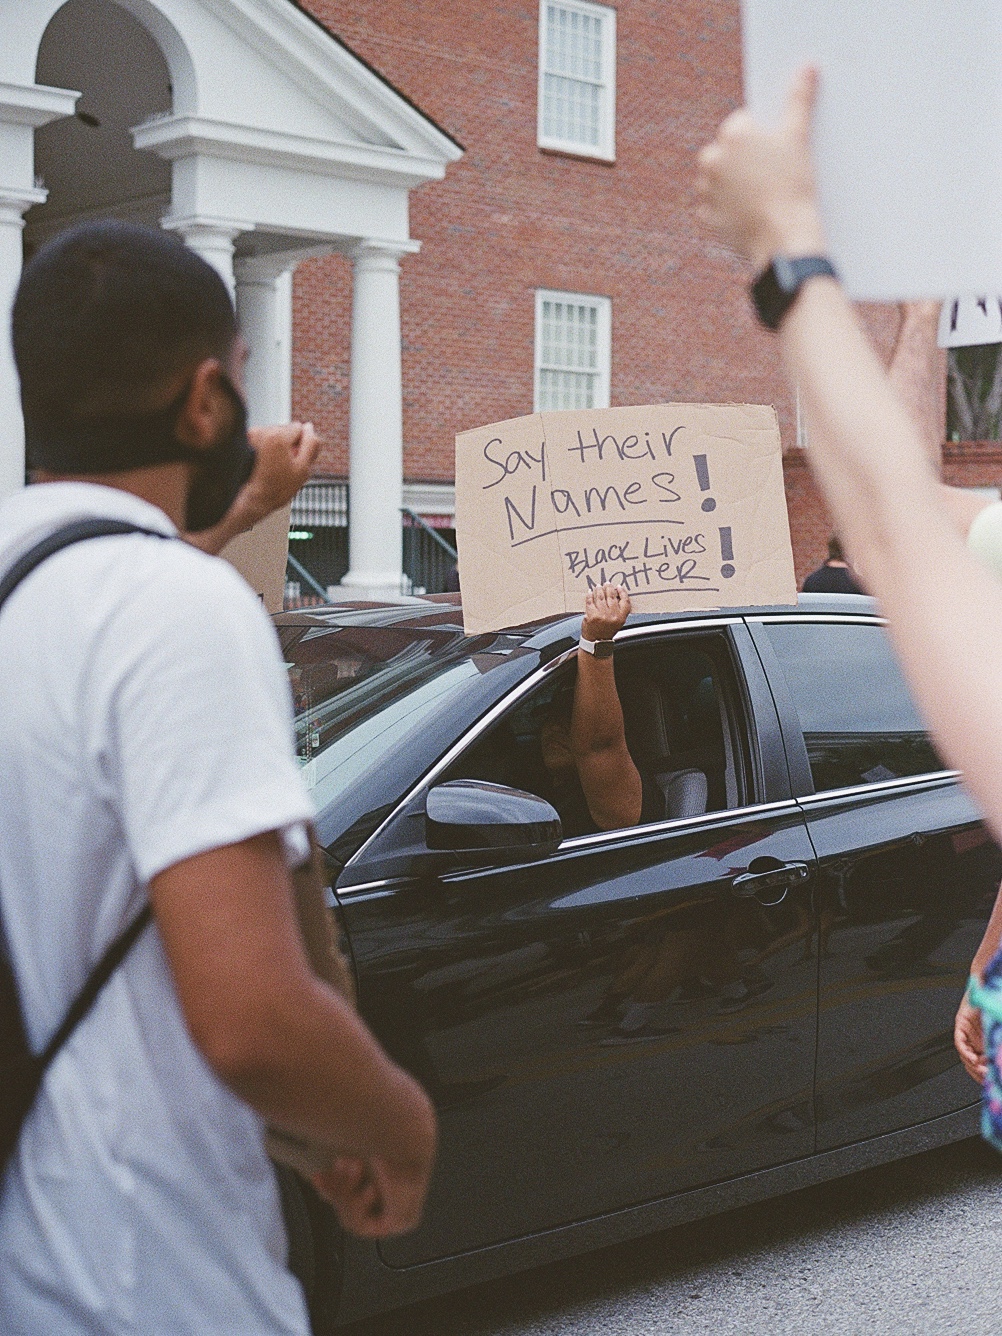 Say their
Names!
Black Lives
Matter!